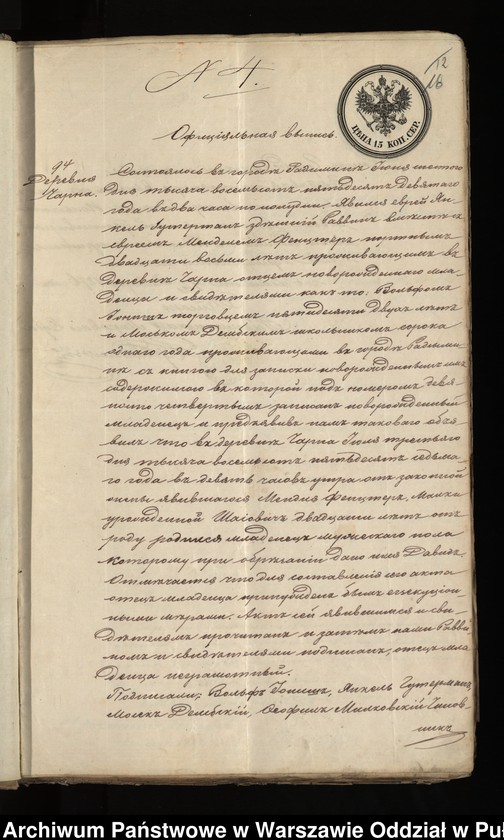 N 4.
12
16
ЦѢНА 15 КОП. СЕР.
Офиціяльная выпись.
94
Деревня
Чарна.
Состоялось въ городѣ Радыминѣ Іюня шестого
дня тысяча восемьсотъ пятьдесятъ девятаго
года въ два часа по полудни, Явился еврей Ян-
кель Гутерманъ здѣшній Раввинъ вмѣстѣ съ
евреемъ Менделемъ Фенцтеръ портнымъ
двадцати восьми лѣтъ проживающимъ въ
деревнѣ Чарна отцемъ новорожденнаго мла-
денца и свидѣтелями какъ то: Вольфомъ
торговцемъ пятидесяти двухъ лѣтъ
и Моськомъ Дембскимъ школьникомъ сорока
одного года проживающими въ городѣ Радыми-
нѣ съ книгою для записки новорожденныхъ имъ
содержимою въ которой подъ номеромъ девя-
носто четвертымъ записанъ новорожденный
младенецъ и предъявивъ намъ таковаго объя-
вилъ что въ деревнѣ Чарна Іюля третьяго
дня тысяча восемьсотъ пятьдесятъ седьма-
го года въ девять часовъ утра отъ законной
жены явившагося Менделя Фенцтеръ, Малки
урожденной Шаіовичъ двадцати лѣтъ отъ
роду родился младенецъ мужескаго пола
которому при обрѣзаніи дано имя Давидъ.
Отмѣчается что для составленія сего акта
отецъ младенца принужденъ былъ екзекуціон-
ными мѣрами. Актъ сей явившимся и сви-
дѣтелямъ прочитанъ и затѣмъ нами Равви-
номъ и свидѣтелями подписанъ, отецъ мла-
денца неграмотный.
Подписали: Вольфъ Янкель Гутерманъ,
Моськ Дембскій, Ѳеофилъ Милковскій Чинов
никъ
Archiwum Państwowe w Warszawie Oddział w Pu